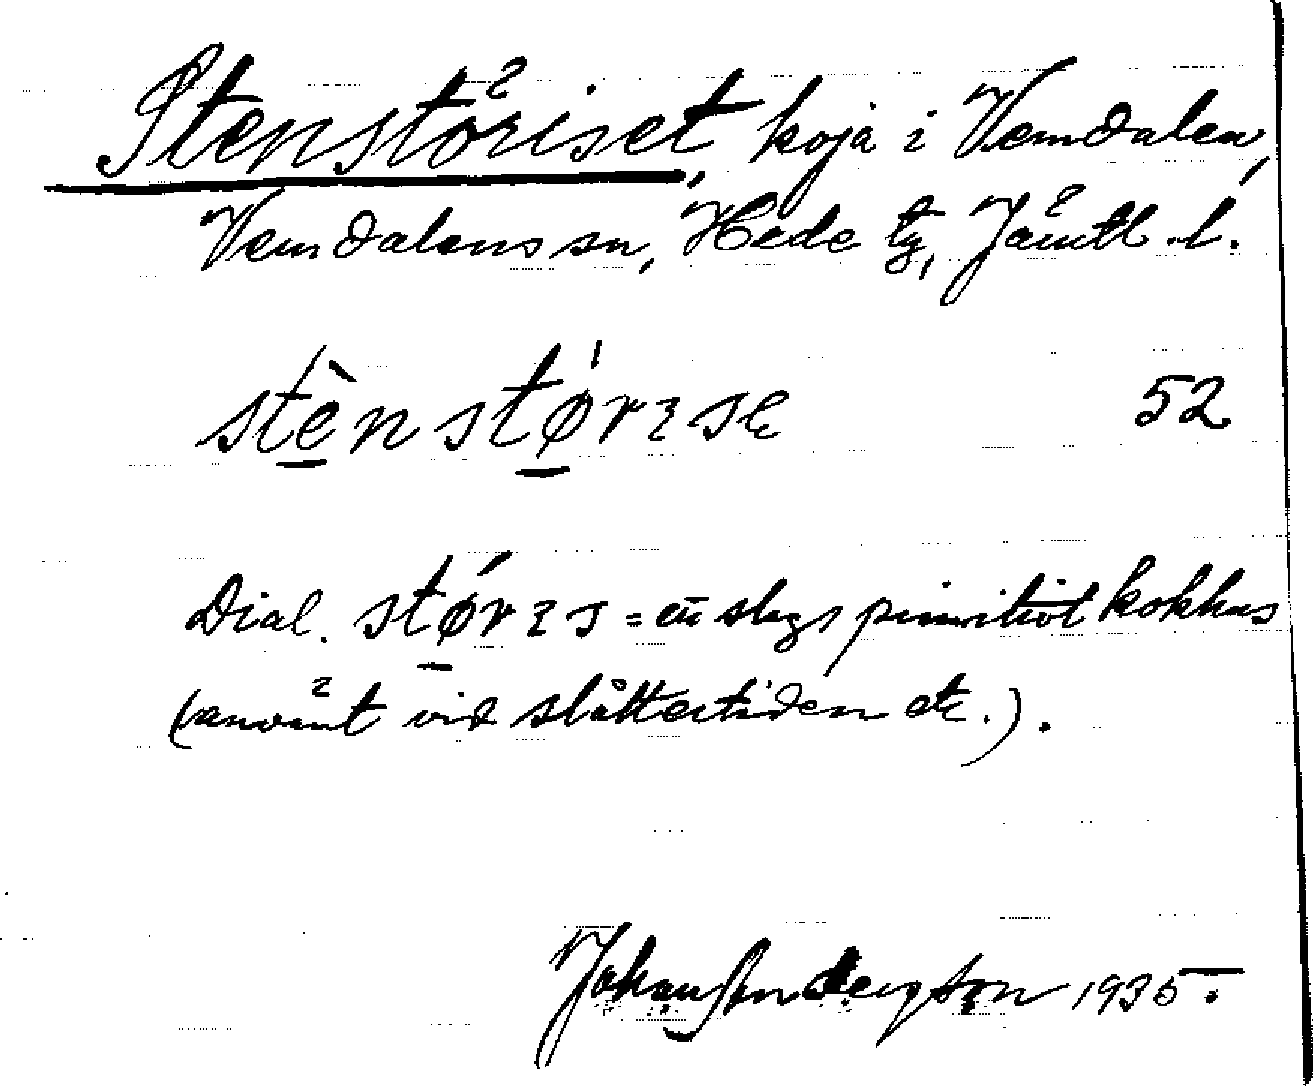 Stenstöriset, koja i Vemdalen,
Vemdalens sn, Hede tg, Jämtl. l.
stènstørɩsɛ 52
Dial. størɩs = ett slags primitivt kokhus
(använt vid slåttertiden etc.).
Johan Anderzson 1935.